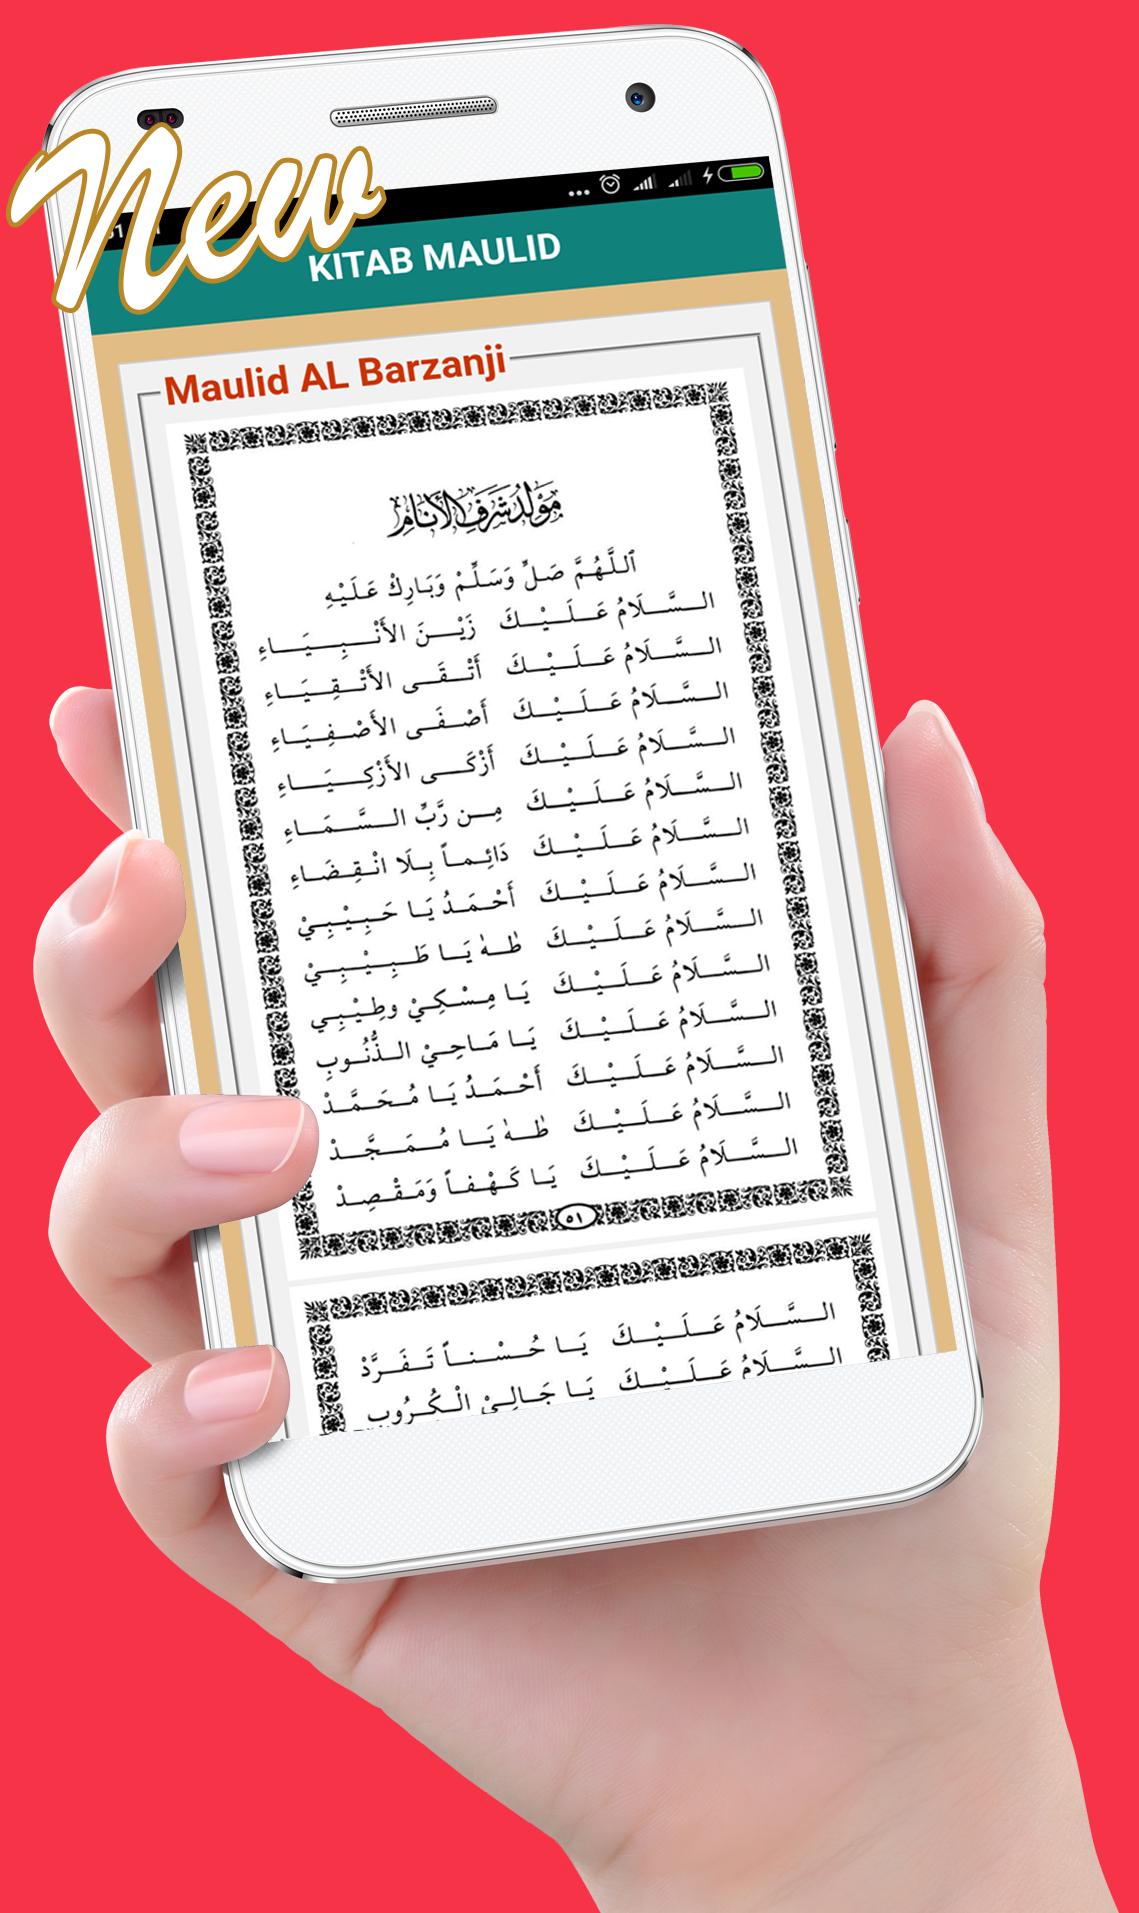 New
KITAB MAULID
Maulid AL Barzanji
مَوْلِدُ شَرَفِ الأَنَامِ
اَللَّهُمَّ صَلِّ وَسَلِّمْ وَبَارِكْ عَلَيْهِ
السَّلَامُ عَلَيْكَ زَيْنَ الأَنْبِيَاءِ
السَّلَامُ عَلَيْكَ أَتْقَى الأَتْقِيَاءِ
السَّلَامُ عَلَيْكَ أَصْفَى الأَصْفِيَاءِ
السَّلَامُ عَلَيْكَ أَزْكَى الأَزْكِيَاءِ
السَّلَامُ عَلَيْكَ مِن رَّبِّ السَّمَاءِ
السَّلَامُ عَلَيْكَ دَائِماً بِلَا انْقِضَاءِ
السَّلَامُ عَلَيْكَ أَحْمَدُ يَا حَبِيْبِيْ
السَّلَامُ عَلَيْكَ طٰهٰ يَا طَبِيْبِيْ
السَّلَامُ عَلَيْكَ يَا مِسْكِيْ وطِيْبِي
السَّلَامُ عَلَيْكَ يَا مَاحِيْ الذُّنُوبِ
السَّلَامُ عَلَيْكَ أَحْمَدُ يَا مُحَمَّدْ
السَّلَامُ عَلَيْكَ طٰهٰ يَا مُمَجَّدْ
السَّلَامُ عَلَيْكَ يَا كَهْفاً وَمَقْصِدْ
٥١
السَّلَامُ عَلَيْكَ يَا حُسْناً تَفَرَّدْ
السَّلَامُ عَلَيْكَ يَا جَالِيْ الْكُرُوبِ